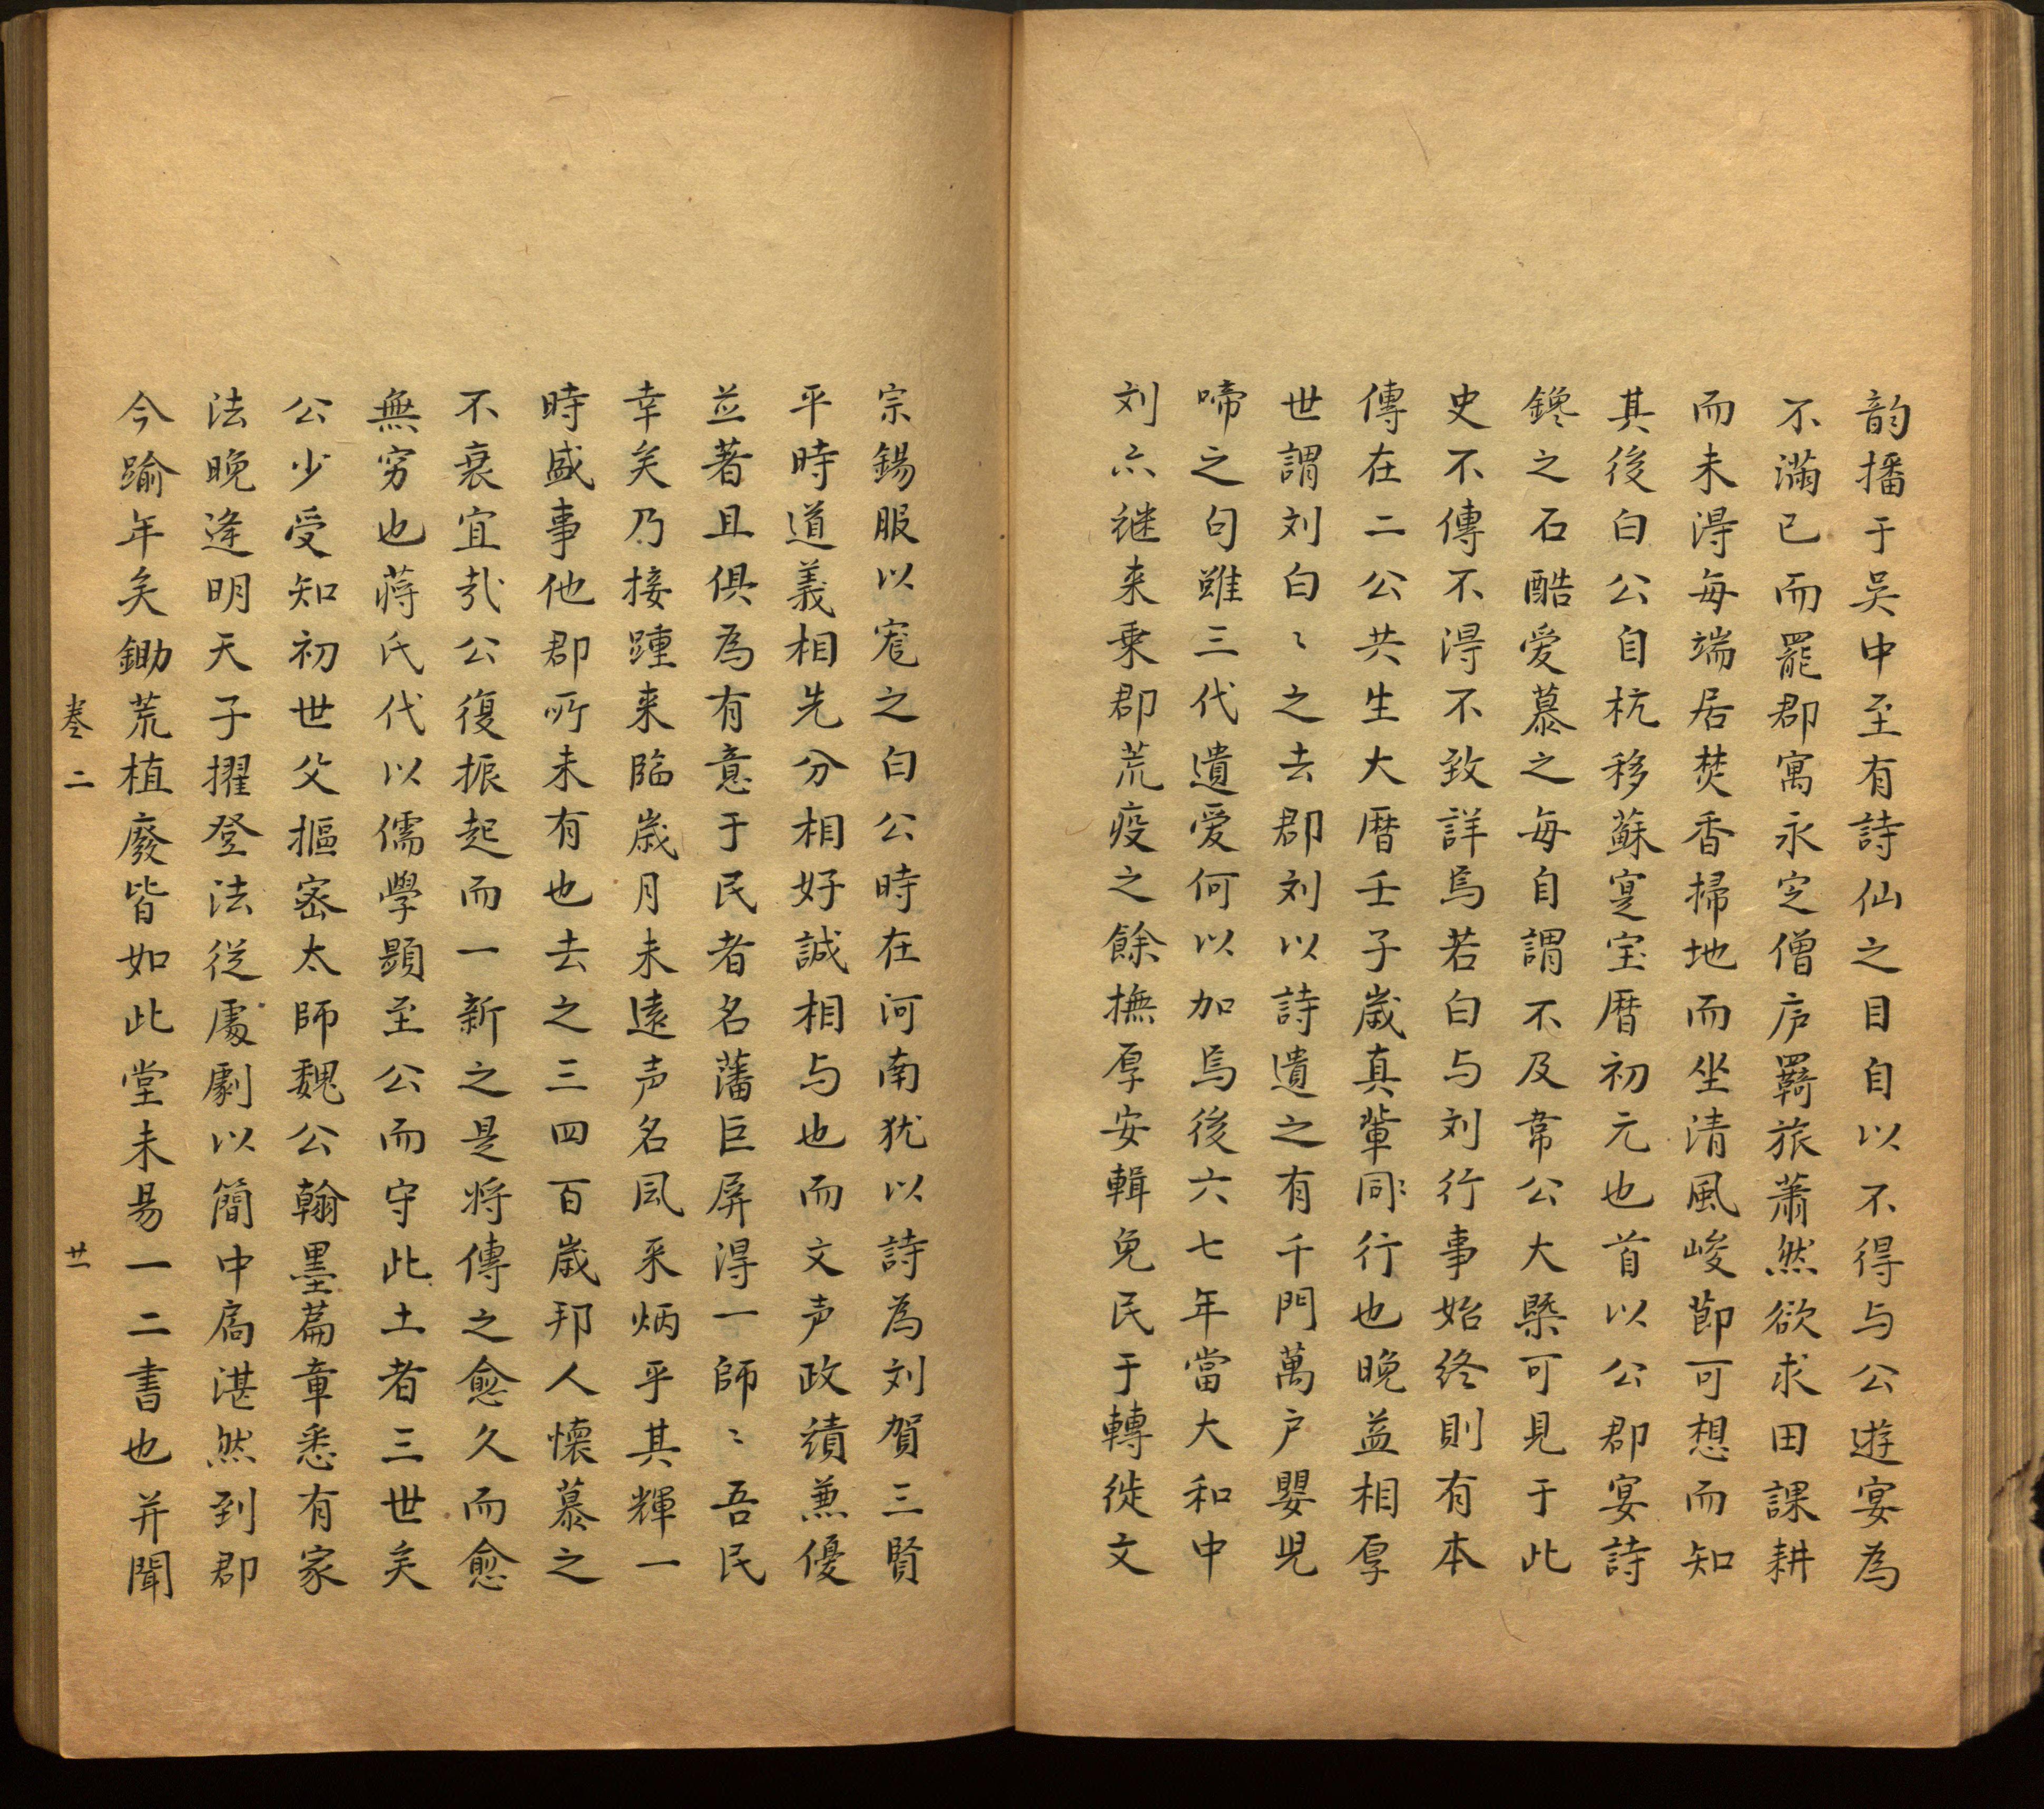 韵播于吴中至有詩仙之目自以不得与公遊宴為
不滿已而罷郡寓永定僧庐羇旅蕭然欲求田課耕
而未得每端居焚香掃地而坐清風峻節可想而知
其後白公自杭移蘇寔宝暦初元也首以公郡宴詩
鑱之石酷爱慕之每自謂不及韋公大槩可見于此
史不傳不得不致詳焉若白与刘行事始终則有本
傳在二公共生大暦壬子歳真輩同行也晩益相厚
世謂刘白〻之去郡刘以詩遺之有千門萬户嬰児
啼之句雖三代遺爱何以加焉後六七年當大和中
刘亦継来乗郡荒疫之餘撫厚安輯免民于轉徙文
宗錫服以寵之白公時在河南犹以詩為刘賀三賢
平時道義相先分相好誠相与也而文声政績兼優
並著且俱為有意于民者名藩巨屏得一師〻吾民
幸矣乃接踵来臨歳月未遠声名风采炳乎其輝一
時盛事他郡所未有也去之三四百歳邦人懐慕之
不衰宜㢤公復振起而一新之是将傳之愈久而愈
無穷也蒋氏代以儒學顕至公而守此土者三世矣
公少受知初世父摳密太師魏公翰墨萹章悉有家
法晚逢明天子擢登法従處劇以簡中扃湛然到郡
今踰年矣鋤荒植廢皆如此堂未易一二書也并聞
卷二
廿一